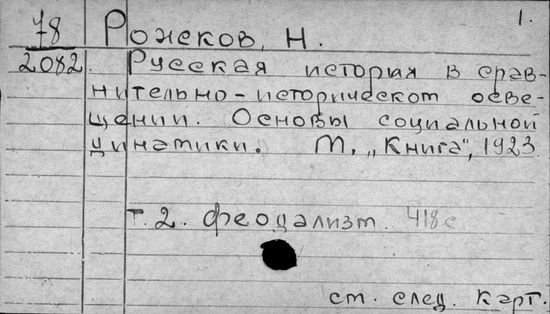 1.
78 Рожков, Н.
2082. Русская история в срав-
нительно-историческом осве-
щении. Основы социальной
динамики. М., „Книга", 1923
т. 2. феодализм. 418 с
см. след. карт.